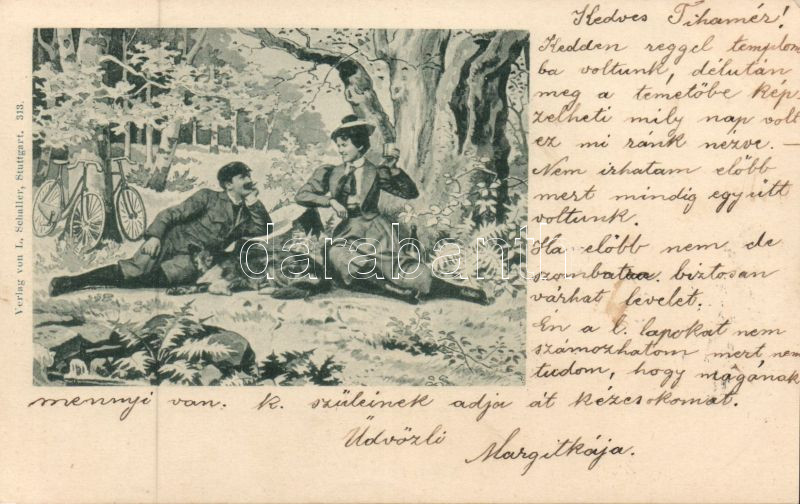 Kedves Tihamér!
Kedden reggel templom
ba voltunk, délután
meg a temetőbe kép
zelheti mily nap volt
ez mi ránk nézve. —
Nem irhatam előbb
mert mindig együtt
voltunk.
Ha előbb nem de
szombaton biztosan
várhat levelet.
Én a l. lapokat nem
számozhatom mert nem
tudom, hogy magának
mennyi van. k. szüleinek adja át kézcsokomat.
Üdvözli
Margitkája.
Verlag von L. Schaller, Stuttgart. 313.
darabanth.com